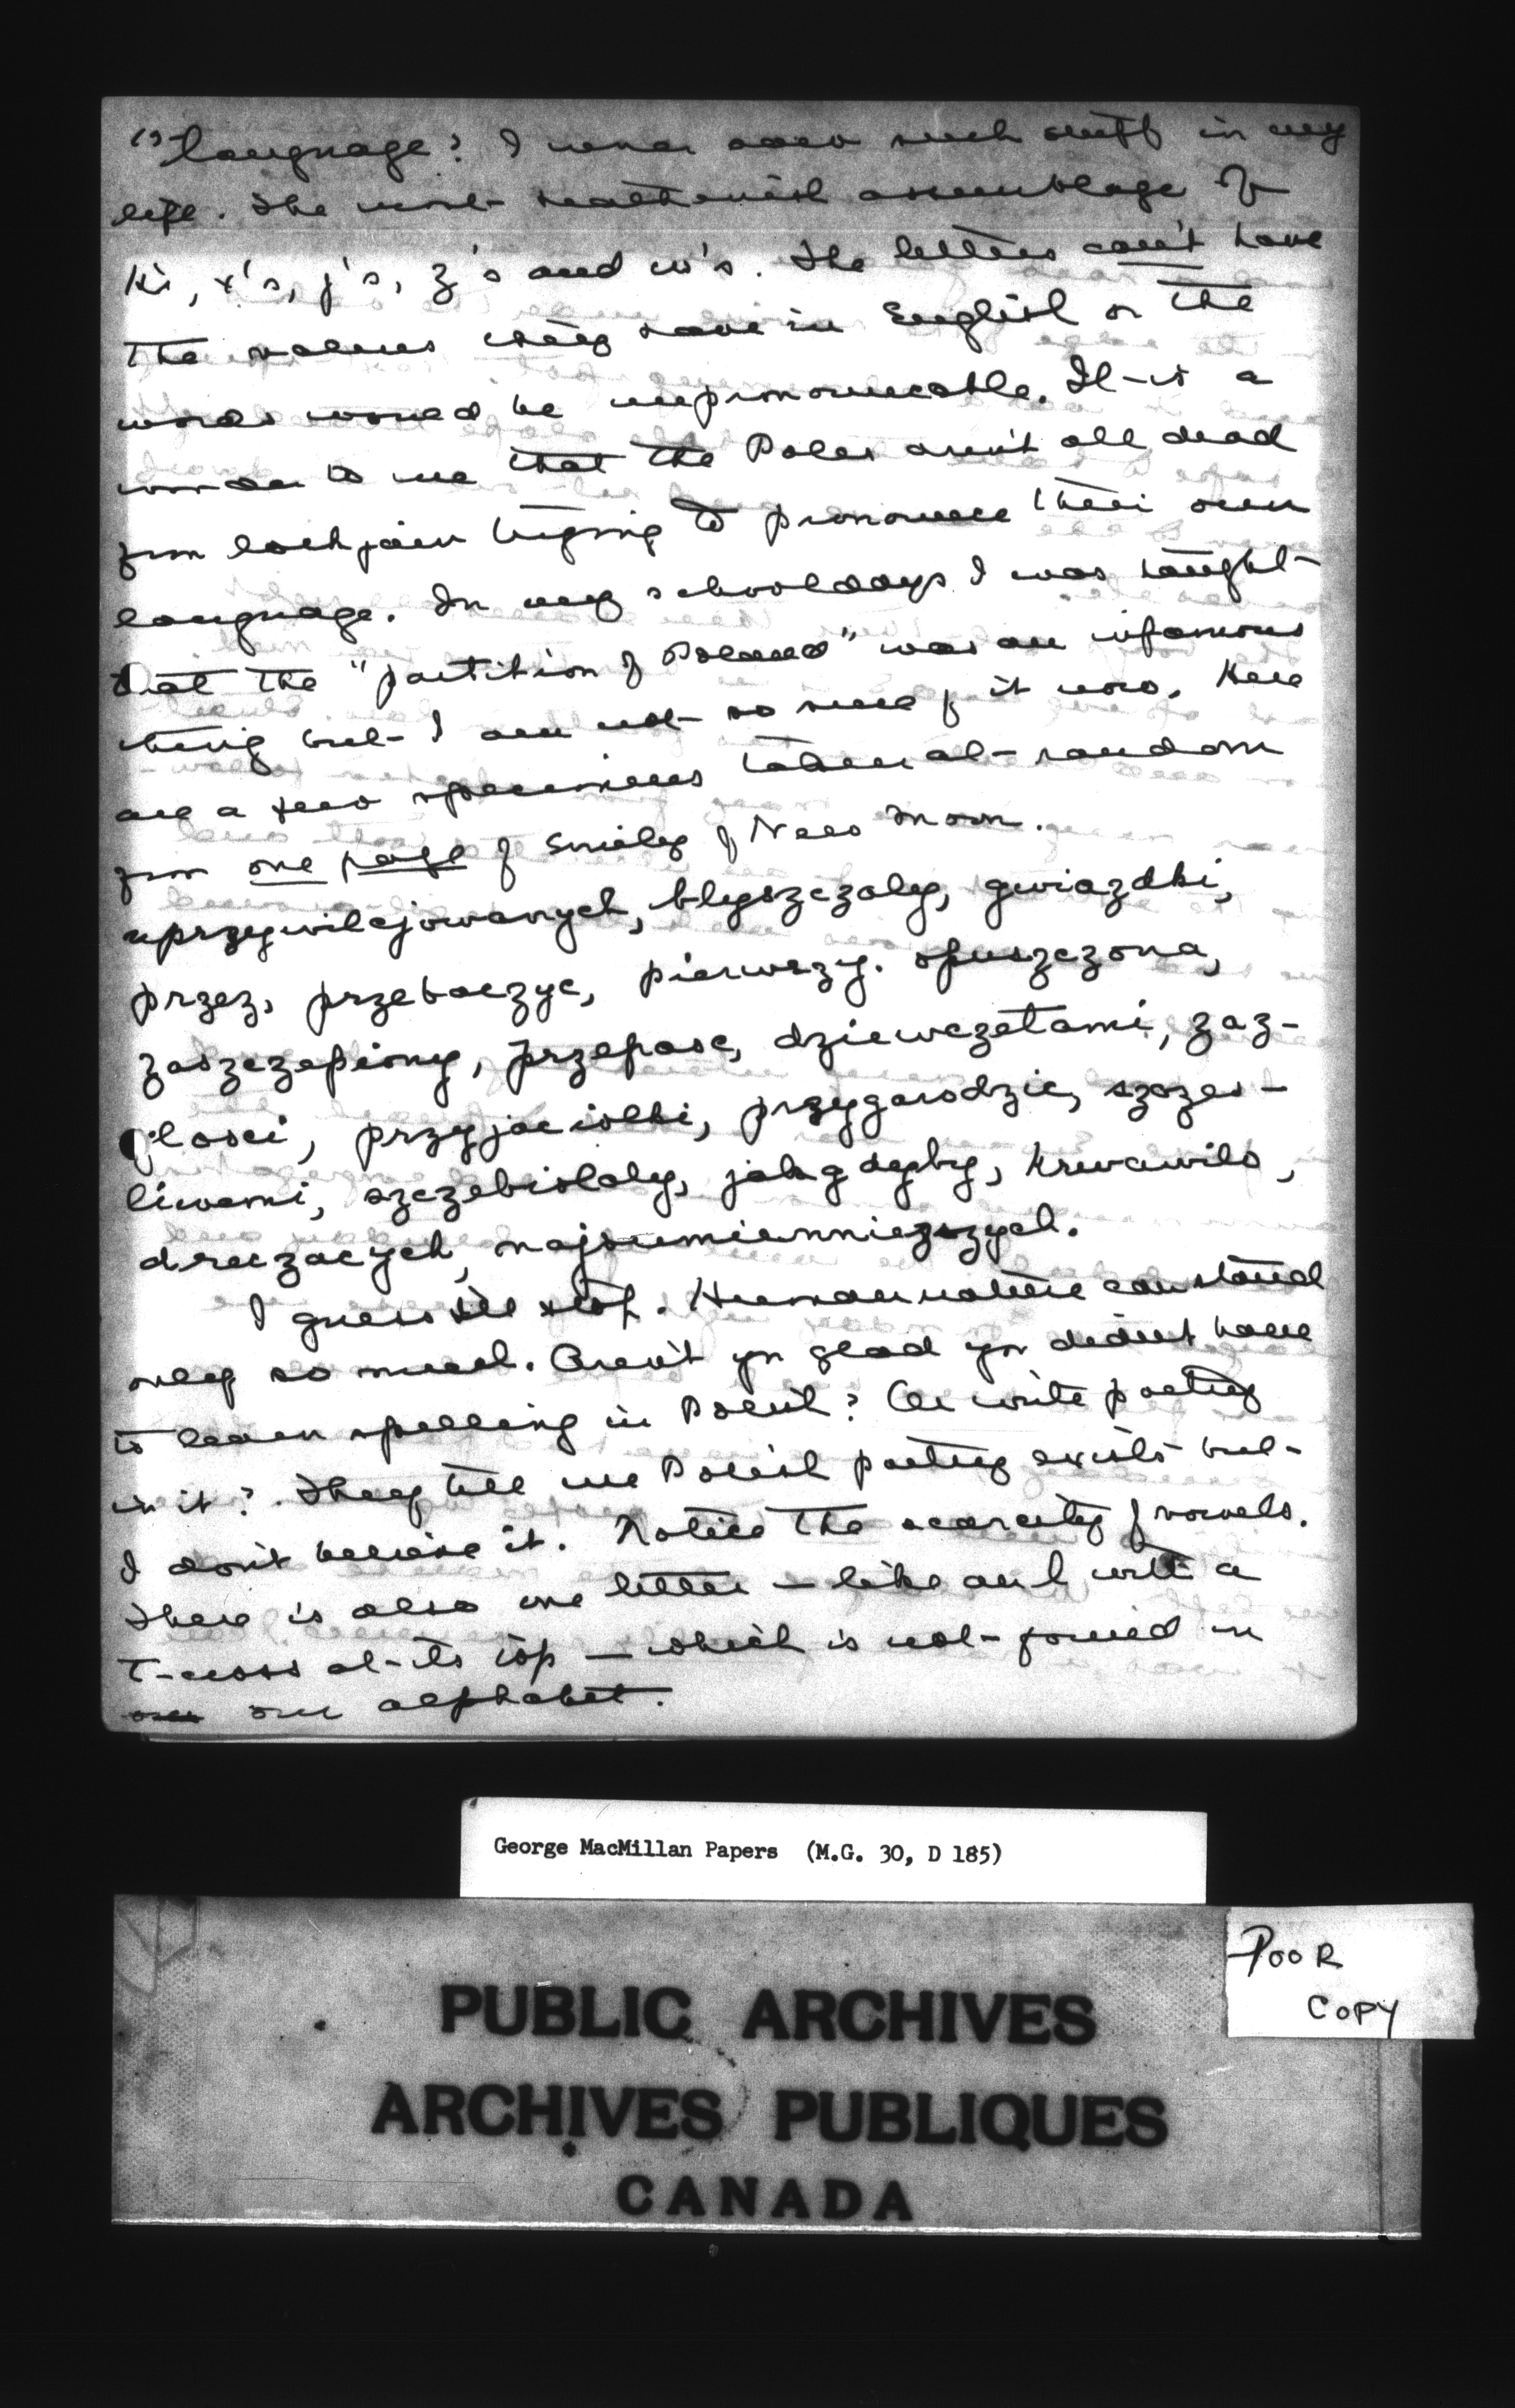 language? I never saw such stuff in my
life. The most heathenish assemblage of
k's, x's, j's, z's and w's. The letters can't have
the values they have in English or the
words would be unpronounceable. It is a
wonder to me that the Poles aren't all dead
from lockjaw trying to pronounce their own
language. In my schooldays I was taught
that the "partition of Poland" was an infamous
thing but I am not so sure of it now. Here
are a few specimens taken at random
from one page of Emily of New Moon.
uprzywilejowanych, blyszczaly, gwiazdki,
przez, przebaczyc, pierwszy. opuszczona,
zaszczepiony, przepasc, dziewczetami, zaz-
losci, przyjaciolki, przygarodzie, szczes-
liwemi, szczebiotaly, jakgdyby, krwawilo,
dreczacych, najsumienniezszych.
I guess I'll stop. Human nature can stand
only so much. Aren't you glad you didn't have
to learn spelling in Polish? Or write poetry
in it? They tell me Polish poetry exists but
I don't believe it. Notice the scarcity of vowels.
There is also one letter — like an l with a
t-cross at its top — which is not found in
our alphabet.
George MacMillan Papers (M.G. 30, D 185)
POOR
COPY
PUBLIC ARCHIVES
ARCHIVES PUBLIQUES
CANADA